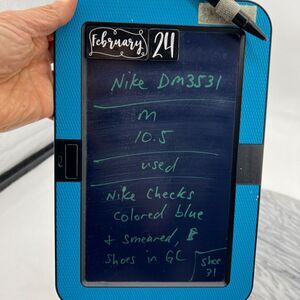 February 24
Nike DM3531
M
10.5
used
Nike Checks
colored blue
+ smeared,
shoes in GC
shoe
71